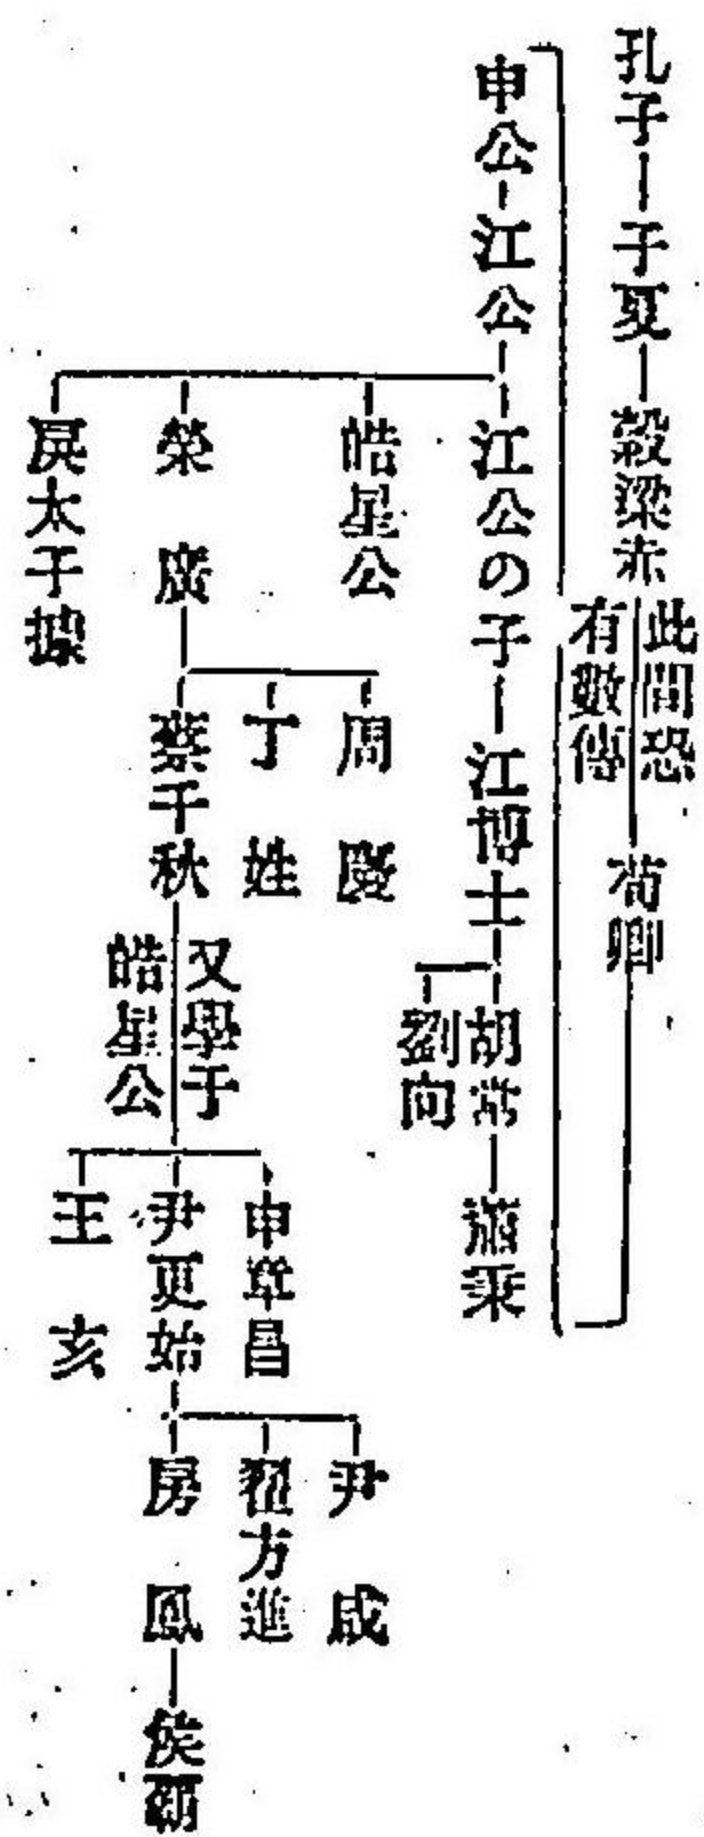 孔子
子夏
穀梁赤
此間恐
有數傳
荀卿
申公
江公
江公の子
江博士
胡常
蕭秉
劉向
皓星公
榮廣
周慶
丁姓
蔡千秋
又學于
皓星公
申章昌
尹更始
尹咸
翟方進
房鳳
侯霸
王亥
戾太子據